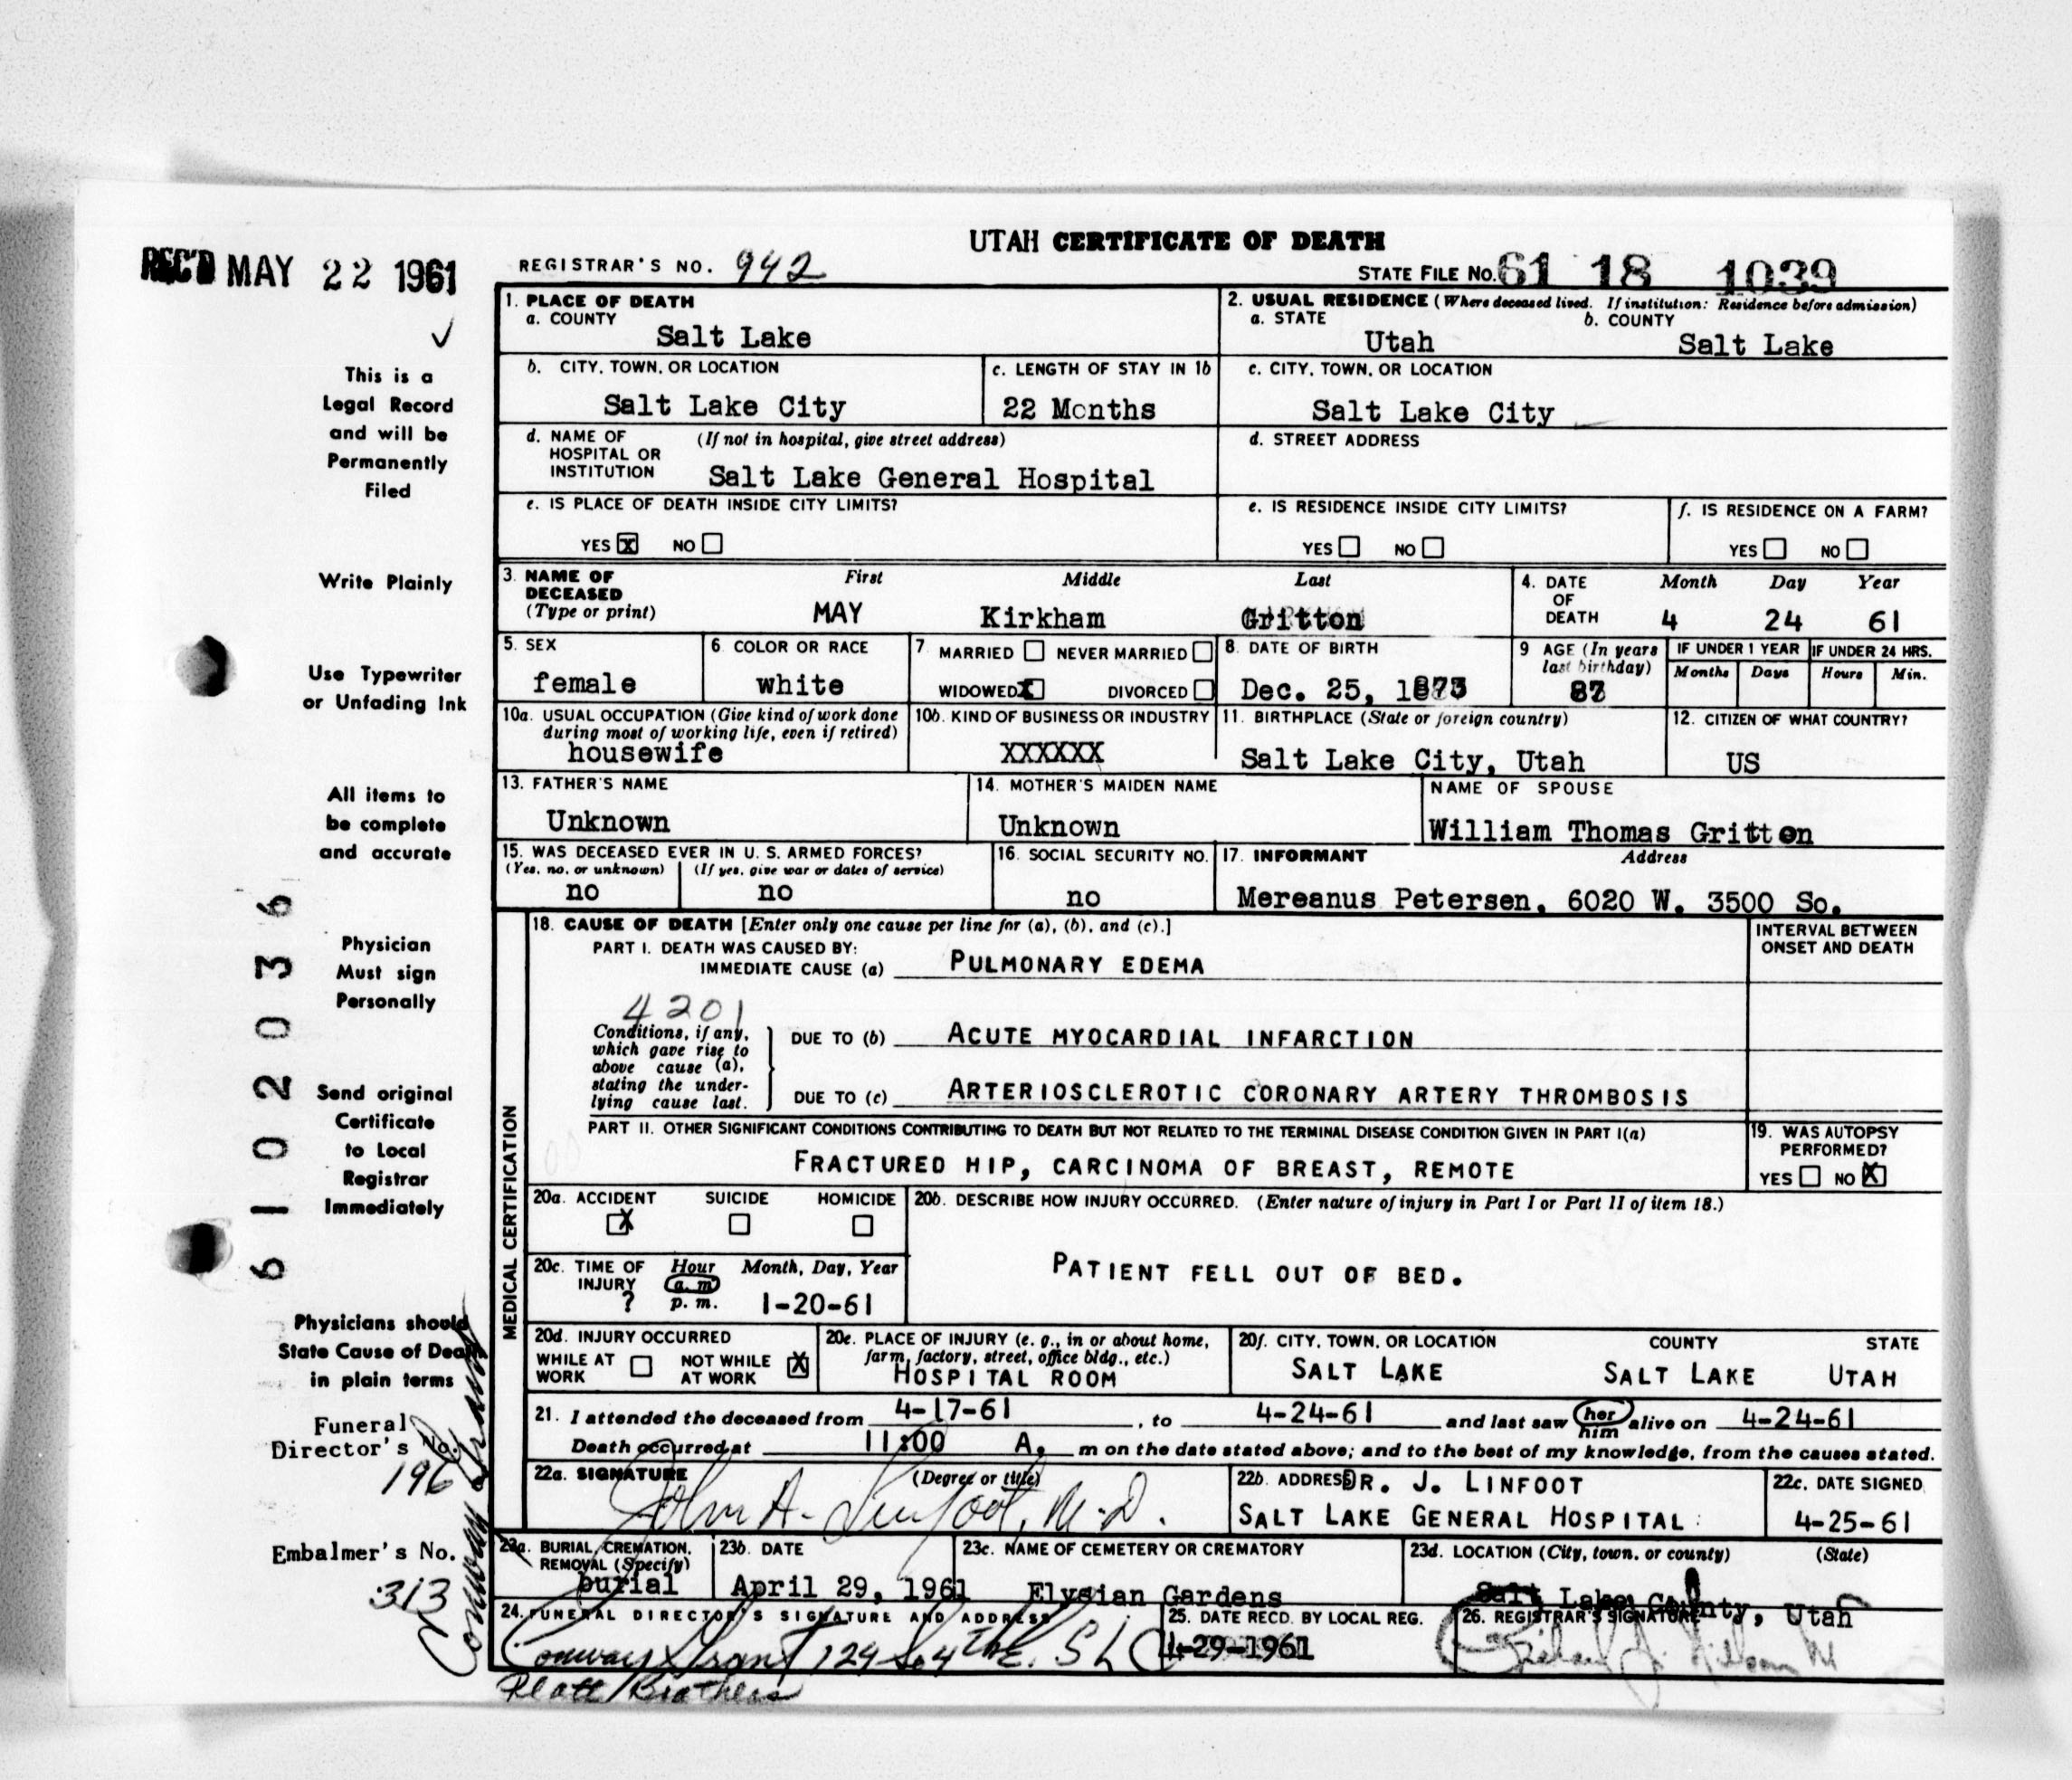 UTAH CERTIFICATE OF DEATH
REC'D MAY 22 1961
REGISTRAR'S NO. 942
STATE FILE NO. 61 18 1039
1. PLACE OF DEATH
a. COUNTY
Salt Lake
2. USUAL RESIDENCE (Where deceased lived. If institution: Residence before admission)
a. STATE b. COUNTY
Utah Salt Lake
b. CITY, TOWN, OR LOCATION
Salt Lake City
c. LENGTH OF STAY IN 1b
22 Months
c. CITY, TOWN, OR LOCATION
Salt Lake City
d. NAME OF HOSPITAL OR INSTITUTION (If not in hospital, give street address)
Salt Lake General Hospital
d. STREET ADDRESS
e. IS PLACE OF DEATH INSIDE CITY LIMITS?
YES X NO
e. IS RESIDENCE INSIDE CITY LIMITS?
YES NO
f. IS RESIDENCE ON A FARM?
YES NO
3. NAME OF DECEASED (Type or print)
First Middle Last
MAY Kirkham Gritton
4. DATE OF DEATH
Month Day Year
4 24 61
5. SEX
female
6. COLOR OR RACE
white
7. MARRIED NEVER MARRIED
WIDOWED X DIVORCED
8. DATE OF BIRTH
Dec. 25, 1873
9 AGE (In years last birthday)
87
IF UNDER 1 YEAR IF UNDER 24 HRS.
Months Days Hours Min.
10a. USUAL OCCUPATION (Give kind of work done during most of working life, even if retired)
housewife
10b. KIND OF BUSINESS OR INDUSTRY
XXXXXX
11. BIRTHPLACE (State or foreign country)
Salt Lake City, Utah
12. CITIZEN OF WHAT COUNTRY?
US
13. FATHER'S NAME
Unknown
14. MOTHER'S MAIDEN NAME
Unknown
NAME OF SPOUSE
William Thomas Gritton
15. WAS DECEASED EVER IN U. S. ARMED FORCES?
(Yes, no, or unknown) (If yes, give war or dates of service)
no no
16. SOCIAL SECURITY NO.
no
17. INFORMANT Address
Mereanus Petersen, 6020 W. 3500 So.
MEDICAL CERTIFICATION
18. CAUSE OF DEATH [Enter only one cause per line for (a), (b), and (c).]
INTERVAL BETWEEN ONSET AND DEATH
PART I. DEATH WAS CAUSED BY:
IMMEDIATE CAUSE (a) PULMONARY EDEMA
4201
Conditions, if any, which gave rise to above cause (a), stating the underlying cause last.
DUE TO (b) ACUTE MYOCARDIAL INFARCTION
DUE TO (c) ARTERIOSCLEROTIC CORONARY ARTERY THROMBOSIS
PART II. OTHER SIGNIFICANT CONDITIONS CONTRIBUTING TO DEATH BUT NOT RELATED TO THE TERMINAL DISEASE CONDITION GIVEN IN PART I(a)
FRACTURED HIP, CARCINOMA OF BREAST, REMOTE
19. WAS AUTOPSY PERFORMED?
YES NO X
20a. ACCIDENT SUICIDE HOMICIDE
X
20b. DESCRIBE HOW INJURY OCCURRED. (Enter nature of injury in Part I or Part II of item 18.)
PATIENT FELL OUT OF BED.
20c. TIME OF INJURY Hour Month, Day, Year
? a. m. p. m. 1-20-61
20d. INJURY OCCURRED
WHILE AT WORK NOT WHILE AT WORK X
20e. PLACE OF INJURY (e. g., in or about home, farm, factory, street, office bldg., etc.)
HOSPITAL ROOM
20f. CITY, TOWN, OR LOCATION COUNTY STATE
SALT LAKE SALT LAKE UTAH
21. I attended the deceased from 4-17-61, to 4-24-61 and last saw her him alive on 4-24-61
Death occurred at 11:00 A. m on the date stated above; and to the best of my knowledge, from the causes stated.
22a. SIGNATURE (Degree or title)
John A. Linfoot, M.D.
22b. ADDRESS DR. J. LINFOOT
SALT LAKE GENERAL HOSPITAL
22c. DATE SIGNED
4-25-61
23a. BURIAL, CREMATION, REMOVAL (Specify)
burial
23b. DATE
April 29, 1961
23c. NAME OF CEMETERY OR CREMATORY
Elysian Gardens
23d. LOCATION (City, town, or county) (State)
Salt Lake County, Utah
24. FUNERAL DIRECTOR'S SIGNATURE AND ADDRESS
Conway Grant 124 So 4th E. SLC
Platt Brothers
25. DATE RECD. BY LOCAL REG.
4-29-1961
26. REGISTRAR'S SIGNATURE
This is a
Legal Record
and will be
Permanently
Filed
Write Plainly
Use Typewriter
or Unfading Ink
All items to
be complete
and accurate
Physician
Must sign
Personally
Send original
Certificate
to Local
Registrar
Immediately
Physicians should
State Cause of Death
in plain terms
Funeral
Director's No.
196
Embalmer's No.
313
Conway Grant
6102036